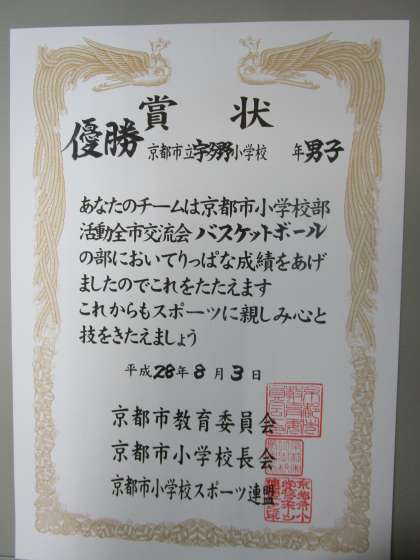 賞状
優勝 京都市立宇多野小学校 年男子
あなたのチームは京都市小学校部
活動全市交流会バスケットボール
の部においてりっぱな成績をあげ
ましたのでこれをたたえます
これからもスポーツに親しみ心と
技をきたえましょう
平成28年8月3日
京都市教育委員会
京都市小学校長会
京都市小学校スポーツ連盟